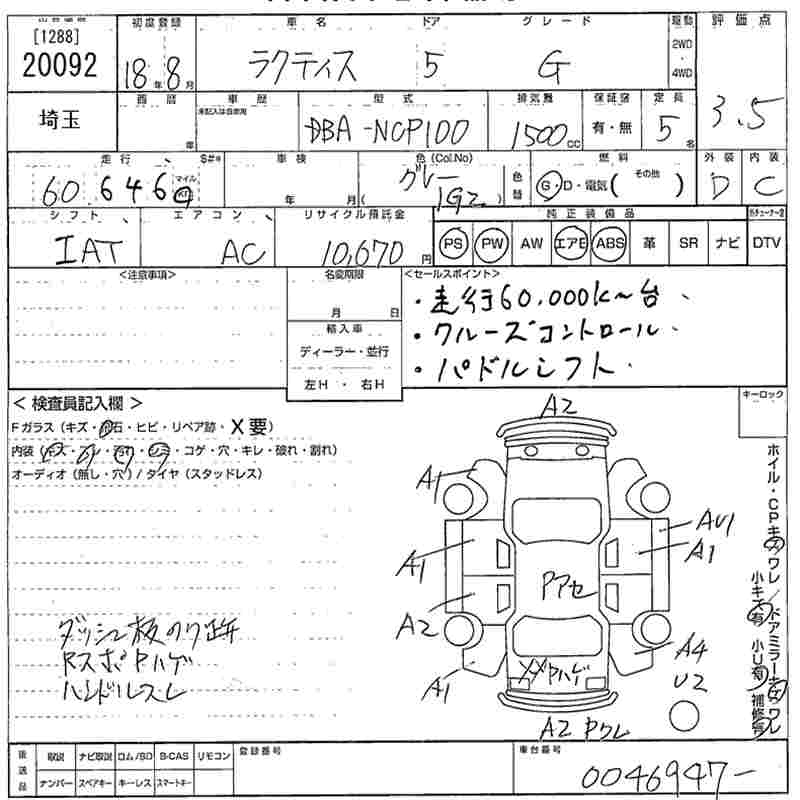 [1288]
20092
初度登録
18年8月
車名
ラクティス
ドア
5
グレード
G
駆動
2WD
・
4WD
評価点
3.5
埼玉
西暦
年
車歴
未記入は自家用
型式
DBA-NCP100
排気量
1500cc
保証書
有・無
定員
5名
走行
60,646
マイル
Km
S#*
車検
年 月
色(Col.No)
グレー
(1G2)
色替
燃料
G・D・電気( その他 )
外装
D
内装
C
シフト
IAT
エアコン
AC
リサイクル預託金
10,670円
純正装備品
PS PW AW エアB ABS 革 SR ナビ DTV
<注意事項>
名変期限
月 日
輸入車
ディーラー・並行
左H ・ 右H
<セールスポイント>
・走行60,000k~台
・クルーズコントロール
・パドルシフト
< 検査員記入欄 >
Fガラス(キズ・飛石・ヒビ・リペア跡・X要)
内装(キズ・スレ・汚れ・シミ・コゲ・穴・キレ・破れ・割れ)
オーディオ(無し・穴)/タイヤ(スタッドレス)
キーロック
A2
A1
A1
A2
A1
AU1
A1
Pアセ
A4
U2
XX Pハゲ
A2 Pワレ
ダッシュ板のり跡
RスポPハゲ
ハンドルスレ
ホイル・CPキズワレ/ドアミラーキズワレ
小キズ有 小U有 補修有
後送品
取説 ナビ取説 ロム/SD B-CAS リモコン
ナンバー スペアキー キーレス スマートキー
登録番号
車台番号
0046947-